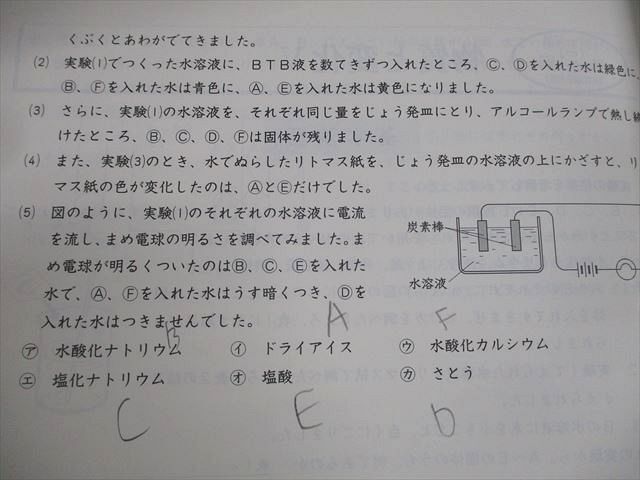 くぶくとあわがでてきました。
(2) 実験(1)でつくった水溶液に、BTB液を数てきずつ入れたところ、Ⓒ、Ⓓを入れた水は緑色に、
Ⓑ、Ⓕを入れた水は青色に、Ⓐ、Ⓔを入れた水は黄色になりました。
(3) さらに、実験(1)の水溶液を、それぞれ同じ量をじょう発皿にとり、アルコールランプで熱し続
けたところ、Ⓑ、Ⓒ、Ⓓ、Ⓕは固体が残りました。
(4) また、実験(3)のとき、水でぬらしたリトマス紙を、じょう発皿の水溶液の上にかざすと、リ
マス紙の色が変化したのは、ⒶとⒺだけでした。
(5) 図のように、実験(1)のそれぞれの水溶液に電流
を流し、まめ電球の明るさを調べてみました。ま
め電球が明るくついたのはⒷ、Ⓒ、Ⓔを入れた
水で、Ⓐ、Ⓕを入れた水はうす暗くつき、Ⓓを
入れた水はつきませんでした。
炭素棒
水溶液
B A F
㋐ 水酸化ナトリウム ㋑ ドライアイス ㋒ 水酸化カルシウム
㋓ 塩化ナトリウム ㋔ 塩酸 ㋕ さとう
C E D